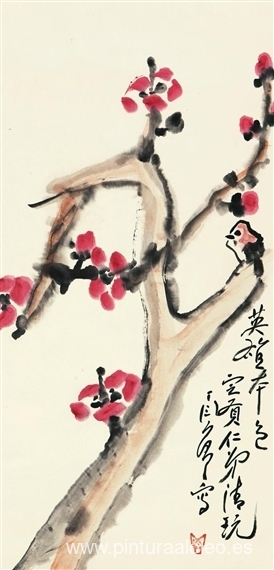 英雄本色
定頎仁弟清玩
丁衍庸寫
www.pinturaaloleo.es